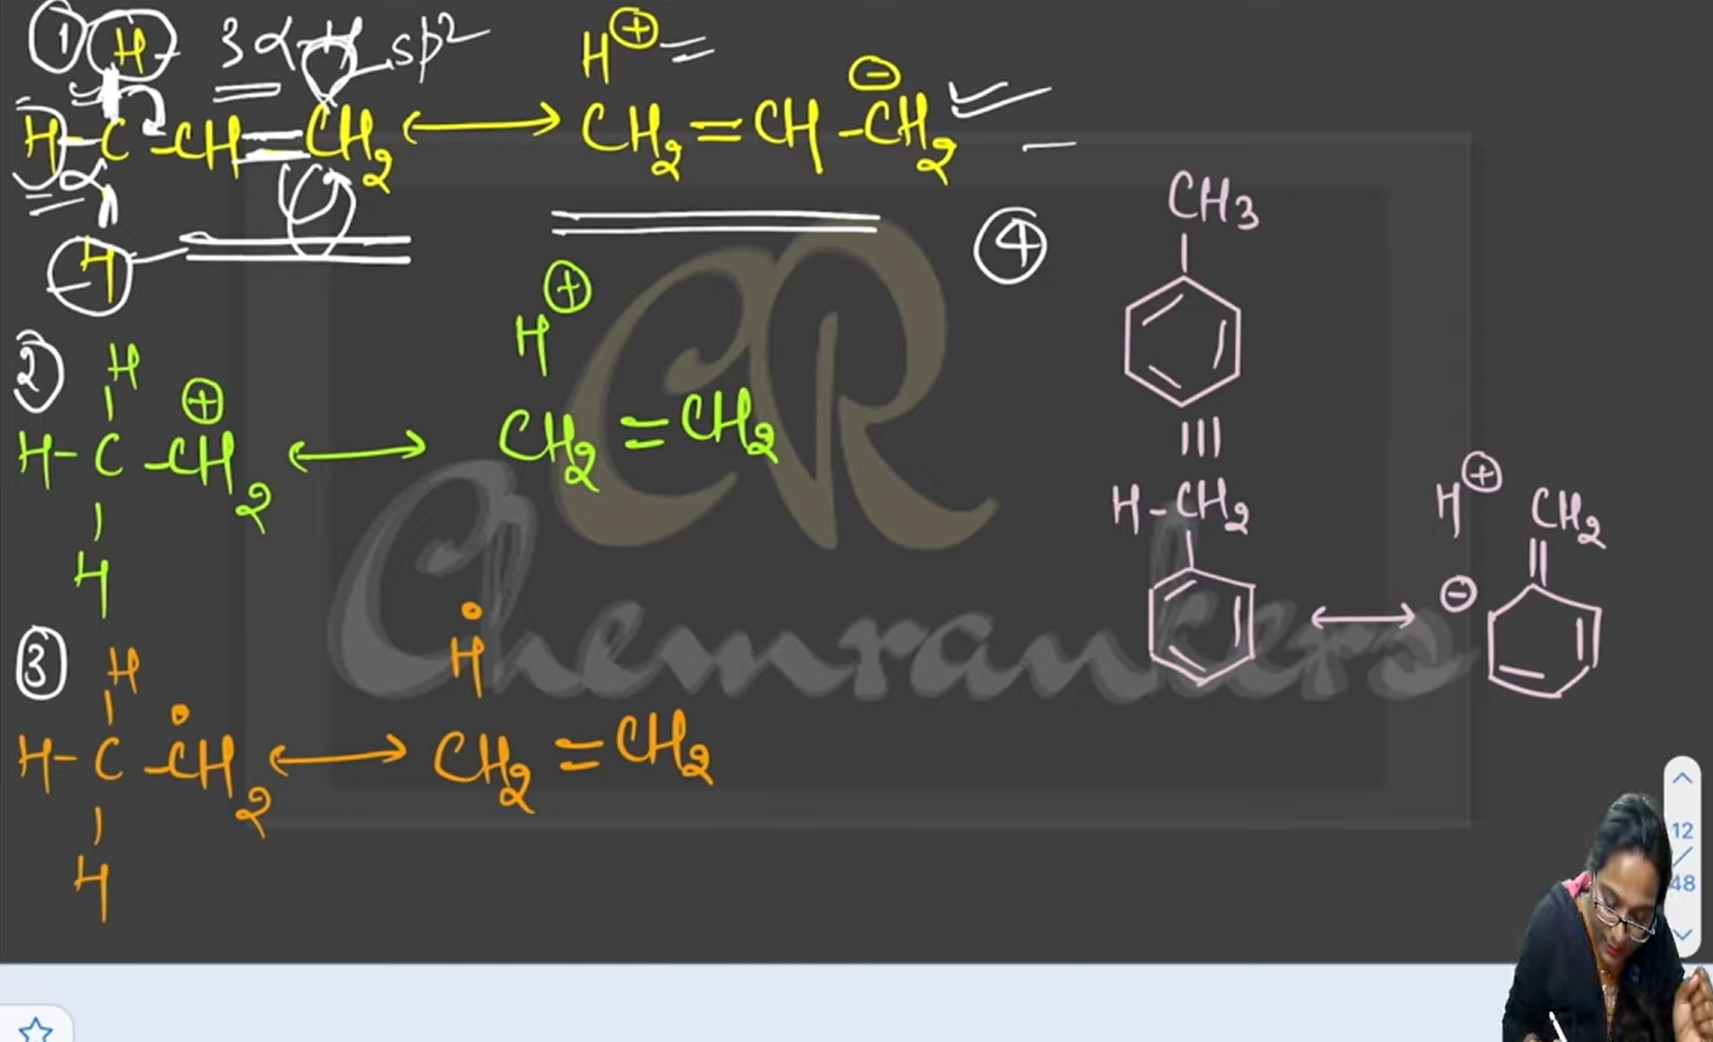 ① H 3 α-H sp² H⊕
H-C-CH=CH₂ ⟷ CH₂=CH-CH₂ ⊖
α
H
②
H ⊕ H⊕
H-C-CH₂ ⟷ CH₂=CH₂
H
③
H • H•
H-C-CH₂ ⟷ CH₂=CH₂
H
④
CH₃
|||
H-CH₂ ⟷ H⊕ CH₂
⊖
CR
Chemrankers
12
48